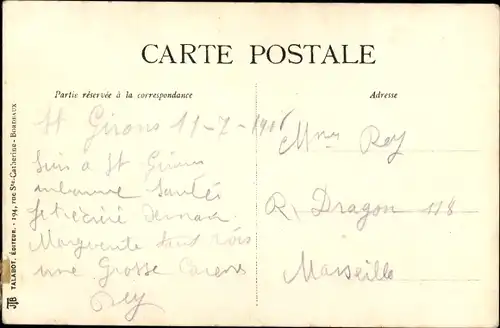 CARTE POSTALE
Partie réservée à la correspondance
Adresse
St Girons 11-7-190
Suis a St Girons
en bonne Santée
Je t'écriré Demain
Marguerite
une Grosse Caresse
Rey
Mme Rey
R. Dragon 118
Marseille
JTB TALABOT, ÉDITEUR. - 194, rue Ste-Catherine - BORDEAUX